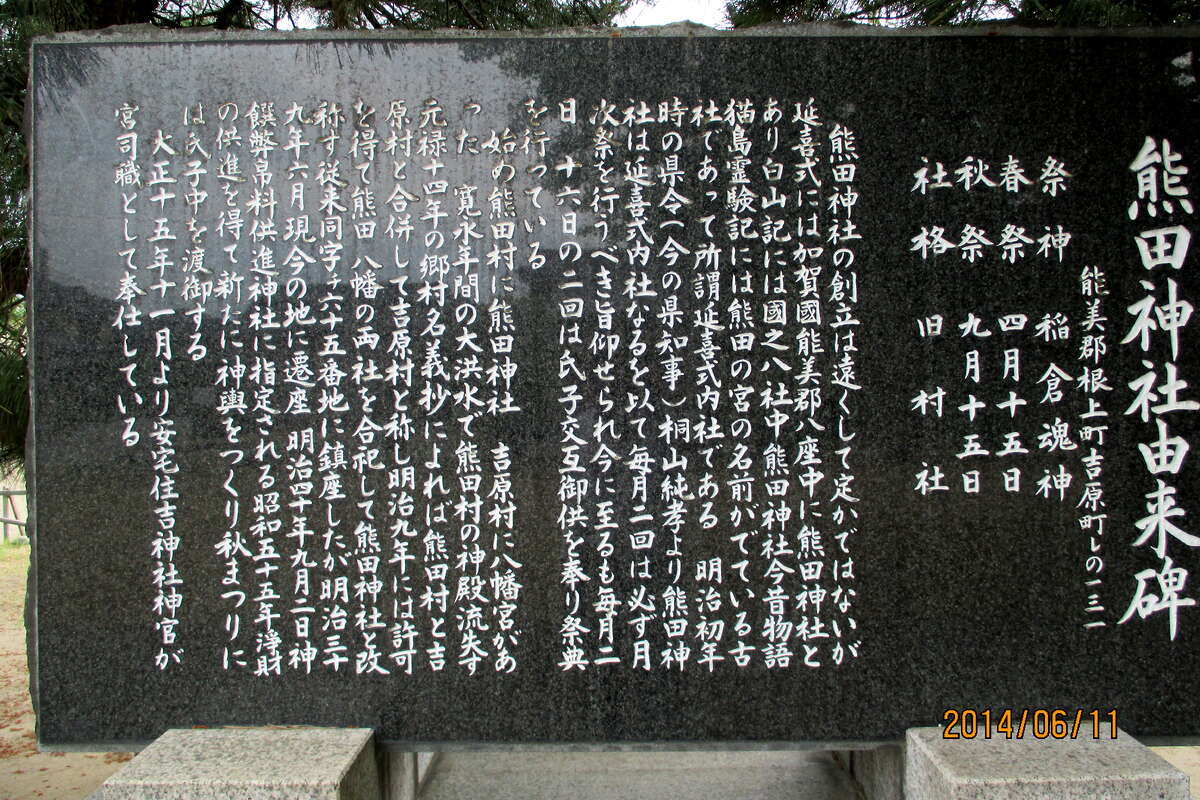 熊田神社由来碑
能美郡根上町吉原町しの一三一
祭神 稲倉魂神
春祭 四月十五日
秋祭 九月十五日
社格 旧村社
熊田神社の創立は遠くして定かではないが
延喜式には加賀國能美郡八座中に熊田神社と
あり白山記には國之八社中熊田神社今昔物語
猫島霊験記には熊田の宮の名前がでている古
社であって所謂延喜式内社である 明治初年
時の県令(今の県知事)桐山純孝より熊田神
社は延喜式内社なるを以て毎月二回は必ず月
次祭を行うべき旨仰せられ今に至るも毎月二
日 十六日の二回は氏子交互御供を奉り祭典
を行っている
始め熊田村に熊田神社 吉原村に八幡宮があ
った 寛永年間の大洪水で熊田村の神殿流失す
元禄十四年の郷村名義抄によれば熊田村と吉
原村と合併して吉原村と称し明治九年には許可
を得て熊田 八幡の両社を合祀して熊田神社と改
称す従来同字チ六十五番地に鎮座したが明治三十
九年六月現今の地に遷座 明治四十年九月二日神
饌幣帛料供進神社に指定される昭和五十五年浄財
の供進を得て新たに神輿をつくり秋まつりに
は氏子中を渡御する
大正十五年十一月より安宅住吉神社神官が
宮司職として奉仕している
2014/06/11